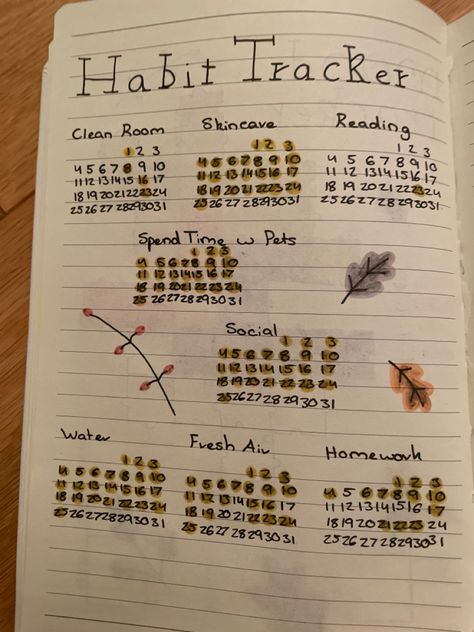 Habit Tracker
Clean Room
1 2 3
4 5 6 7 8 9 10
11 12 13 14 15 16 17
18 19 20 21 22 23 24
25 26 27 28 29 30 31
Skincare
1 2 3
4 5 6 7 8 9 10
11 12 13 14 15 16 17
18 19 20 21 22 23 24
25 26 27 28 29 30 31
Reading
1 2 3
4 5 6 7 8 9 10
11 12 13 14 15 16 17
18 19 20 21 22 23 24
25 26 27 28 29 30 31
Spend Time w Pets
1 2 3
4 5 6 7 8 9 10
11 12 13 14 15 16 17
18 19 20 21 22 23 24
25 26 27 28 29 30 31
Social
1 2 3
4 5 6 7 8 9 10
11 12 13 14 15 16 17
18 19 20 21 22 23 24
25 26 27 28 29 30 31
Water
1 2 3
4 5 6 7 8 9 10
11 12 13 14 15 16 17
18 19 20 21 22 23 24
25 26 27 28 29 30 31
Fresh Air
1 2 3
4 5 6 7 8 9 10
11 12 13 14 15 16 17
18 19 20 21 22 23 24
25 26 27 28 29 30 31
Homework
1 2 3
4 5 6 7 8 9 10
11 12 13 14 15 16 17
18 19 20 21 22 23 24
25 26 27 28 29 30 31